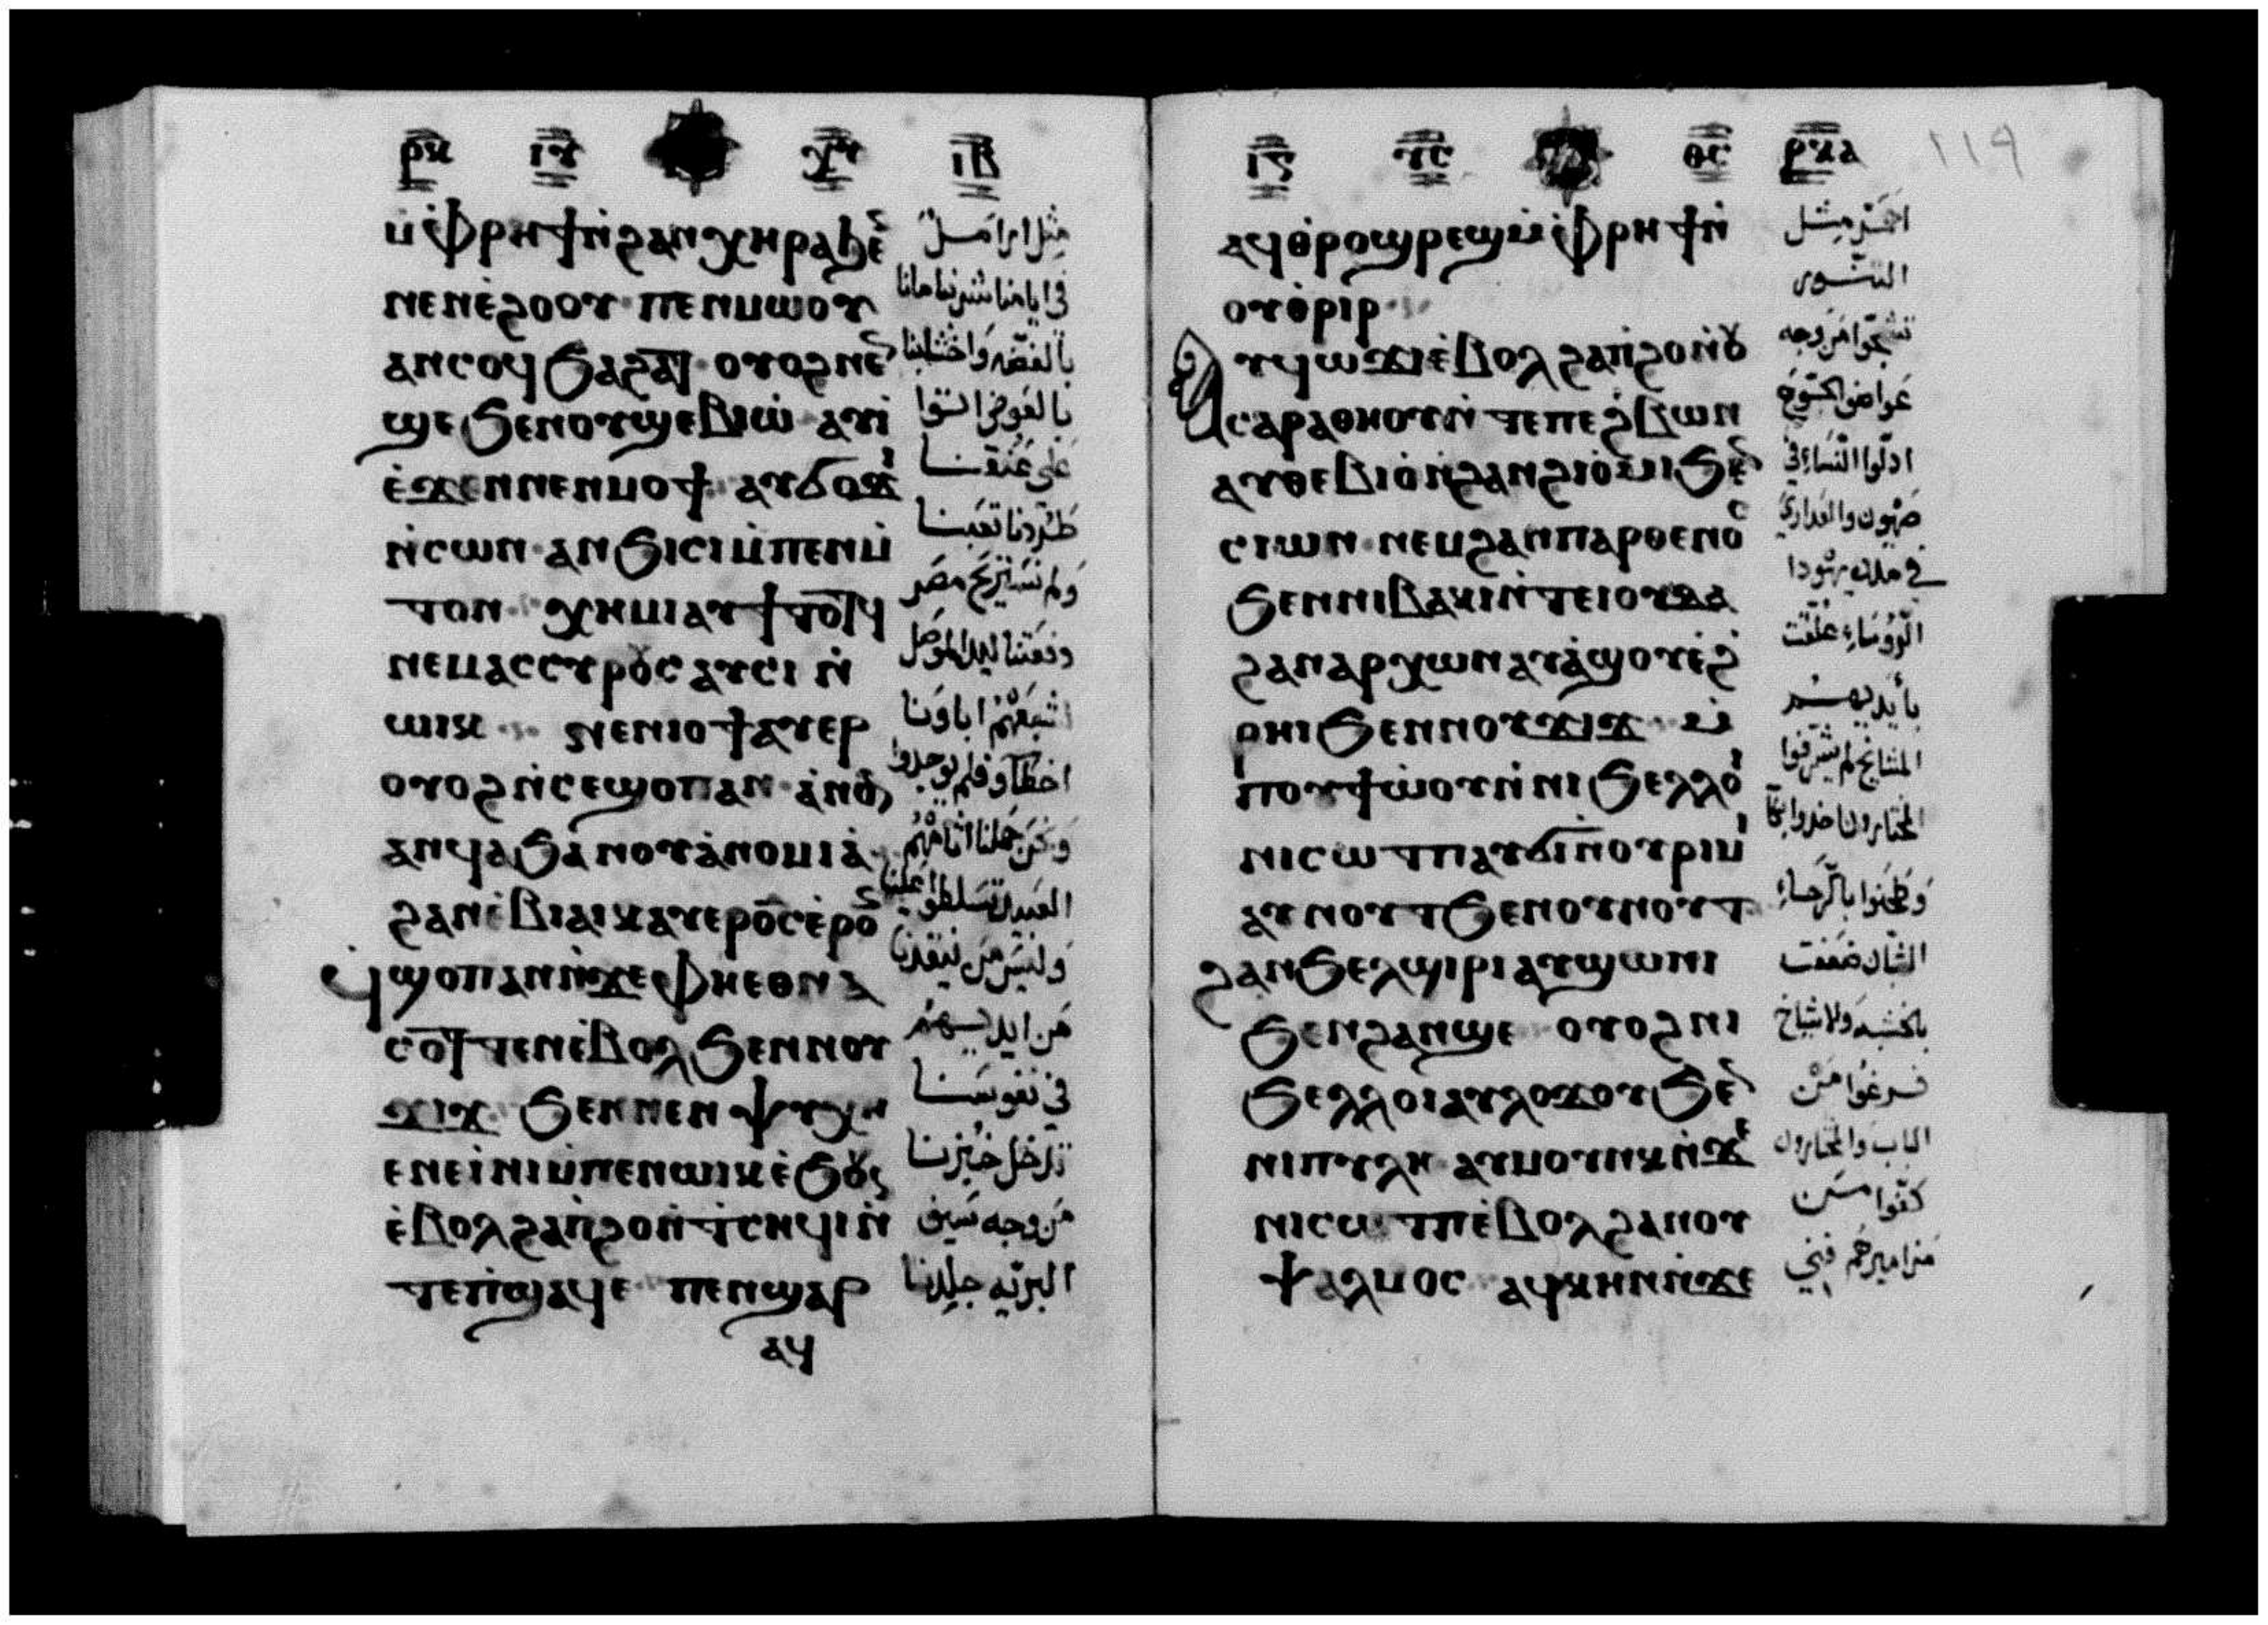 ⲣⲕ ⲓⲥ ⲭⲥ ⲓⲃ
ⲙ̀ⲫⲣⲏϯⲛ̀ϩⲁⲛⲭⲏⲣⲁϧⲉ̅
ⲛⲉⲛⲉ̀ϩⲟⲟⲩ ⲡⲉⲛⲙⲱⲟⲩ
ⲁⲛⲥⲟϥϧⲁϩⲁⲧ ⲟⲩⲟϩⲛⲉ̅
ϣⲉϧⲉⲛⲟⲩϣⲉⲃⲓⲱ̀ ⲁⲩⲓ̀
ⲉ̀ϫⲉⲛⲛⲉⲛⲙⲟϯ ⲁⲩϭⲟϫⲓ
ⲛ̀ⲥⲱⲛ ⲁⲛϧⲓⲥⲓⲙ̀ⲡⲉⲛⲙ̀
ⲧⲟⲛ ⲭⲏⲙⲓⲁⲩϯⲧⲟⲧϥ
ⲛⲉⲙⲁⲥⲥⲩⲣⲟⲥ ⲁⲩⲥⲓ ⲛ̀
ⲱⲓⲕ ⲛⲉⲛⲓⲟϯⲁⲩⲉⲣ
ⲟⲩⲟϩⲛ̀ⲥⲉϣⲟⲡⲁⲛ ⲁ̀ⲛⲟⲛ
ⲁⲛϥⲁϧⲁⲛⲟⲩⲁ̀ⲛⲟⲙⲓⲁ̀
ϩⲁⲛⲉ̀ⲃⲓⲁⲓⲕⲁⲩⲉⲣⲟ̅ⲥⲉ̀ⲣⲟ̅
ϥ̀ϣⲟⲡⲁⲛⲛ̀ϫⲉⲫⲏⲉⲑⲛⲁ
ⲥⲟⲧⲧⲉⲛⲉ̀ⲃⲟⲗϧⲉⲛⲛⲟⲩ
ϫⲓϫ ϧⲉⲛⲛⲉⲛ ⲯⲩⲭⲏ
ⲉⲛⲉⲓ̀ⲛⲓⲙ̀ⲡⲉⲛⲱⲓⲕⲉ̀ϧⲟⲩⲛ
ⲉ̀ⲃⲟⲗϩⲁⲡ̀ϩⲟⲛ̀ⲧⲥⲏϥⲓⲛ̀
ⲧⲉⲡ̀ϣⲁϥⲉ ⲡⲉⲛϣⲁⲣ
ⲁϥ
مثل ارامل
في ايامنا شربنا مانا
بالفضه واخشابنا
بالعوض اتوا
على عنقنا
طردنا تعبنا
ولم نستريح مصر
دفعتنا ليد الموصل
اشبعهم اباونا
اخطاو فلم يوجدوا
ونحن حملنا اثامهم
العبيد تسلطوا علينا
وليس من ينقذنا
من ايديهم
في نفوسنا
ندخل خبزنا
من وجه سيف
البريه جلدنا
ⲓⲥ ⲩⲥ ⲑⲥ ⲣⲕⲁ
١١٩
ⲁϥⲑⲣⲟϣⲣⲉϣⲙ̀ⲫⲣⲏϯⲛ̀
ⲟⲩⲑⲣⲓⲣ
ⲁⲩϥⲱϫⲓⲉ̀ⲃⲟⲗϩⲁⲡ̀ϩⲟⲛ̀ⲟⲩ
ⲥⲁⲣⲁⲑⲏⲟⲩⲛ̀ⲧⲉⲡⲉϩⲃⲱⲛ
ⲁⲩⲑⲉⲃⲓⲟ̀ⲛ̀ϩⲁⲛϩⲓⲟ̀ⲙⲓϧⲉ̅
ⲥⲓⲱⲛ ⲛⲉⲙϩⲁⲛⲡⲁⲣⲑⲉⲛⲟⲥ
ϧⲉⲛⲛⲓⲃⲁⲕⲓⲛ̀ⲧⲉⲓⲟⲩⲇⲁ
ϩⲁⲛⲁⲣⲭⲱⲛⲁⲩⲁ̀ϣⲟⲩⲉ̀ϩ̀
ⲣⲏⲓϧⲉⲛⲛⲟⲩϫⲓϫ ⲙ̀
ⲡⲟⲩϯⲱ̀ⲟⲩⲛ̀ⲛⲓϧⲉⲗⲗⲟⲓ
ⲛⲓⲥⲱⲧⲡⲁⲩϭⲓⲛ̀ⲟⲩⲣⲓⲙⲓ
ⲁⲩⲛⲟⲩⲧϧⲉⲛⲟⲩⲛⲟⲩⲧ
ϩⲁⲛϧⲉⲗϣⲓⲣⲓⲁⲩϣⲱⲛⲓ
ϧⲉⲛϩⲁⲛϣⲉ ⲟⲩⲟϩⲛⲓ
ϧⲉⲗⲗⲟⲓⲁⲩⲗⲟϫⲟⲩϧⲉ̅
ⲛⲓⲡⲩⲗⲏ ⲁⲩⲙⲟⲩⲛⲕⲛ̀ϫⲉ
ⲛⲓⲥⲱⲧⲡⲉ̀ⲃⲟⲗϩⲁⲛⲟⲩ
ⲯⲁⲗⲙⲟⲥ ⲁϥⲕⲏⲛⲛ̀ϫⲉ
احمر مثل
التنور
من وجه
ادلوا النساء في
صهيون والعداري
في مدن يهودا
الرووساء علقت
بأيديهم
المشايخ لم يشرفوا
المختارون اخدوا بكا
وطحنوا بالرحاء
الشبان ضعفت
بالخشبه والاشياخ
فرغوا من
الباب والمختارون
كفوا من
مزاميرهم فني